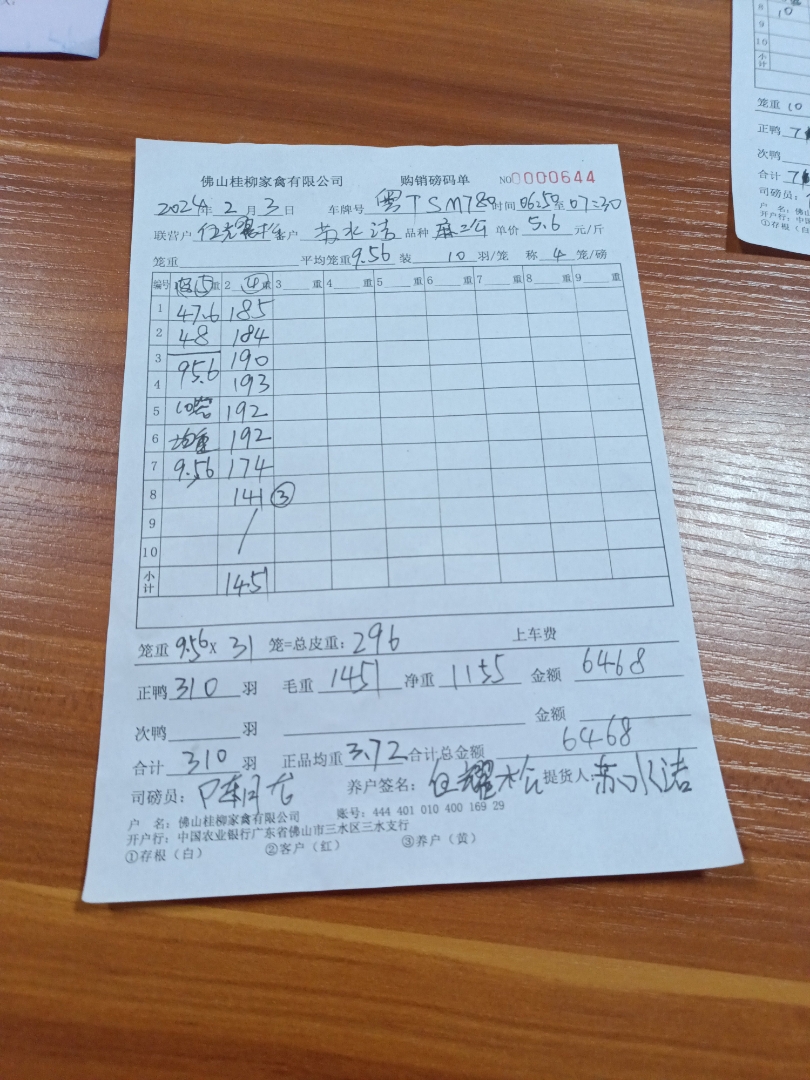 佛山桂柳家禽有限公司 购销磅码单 NO 0000644
2024年2月3日 车牌号 粤TSM780 时间 06:50至07:30
联营户 任耀松 客户 苏水洁 品种 麻二公 单价 5.6 元/斤
笼重 平均笼重 9.56 装 10 羽/笼 称 4 笼/磅
编号 ⑤重 2 ④重 3 重 4 重 5 重 6 重 7 重 8 重 9 重
1 47.6 185
2 48 184
3 95.6 190
4 193
5 10笼 192
6 均重 192
7 9.56 174
8 141 ③
9 /
10
小计 1451
笼重 9.56 x 31 笼=总皮重: 296 上车费
正鸭 310 羽 毛重 1451 净重 1155 金额 6468
次鸭 羽 金额
合计 310 羽 正品均重 3.72 合计总金额 6468
司磅员: 养户签名: 任耀松 提货人: 苏水洁
户 名: 佛山桂柳家禽有限公司 账号: 444 401 010 400 169 29
开户行: 中国农业银行广东省佛山市三水区三水支行
①存根（白） ②客户（红） ③养户（黄）
8 10
9
10
小计
笼重 10
正鸭 7
次鸭
合计
司磅员:
户 名: 佛山
开户行: 中
①存根（白